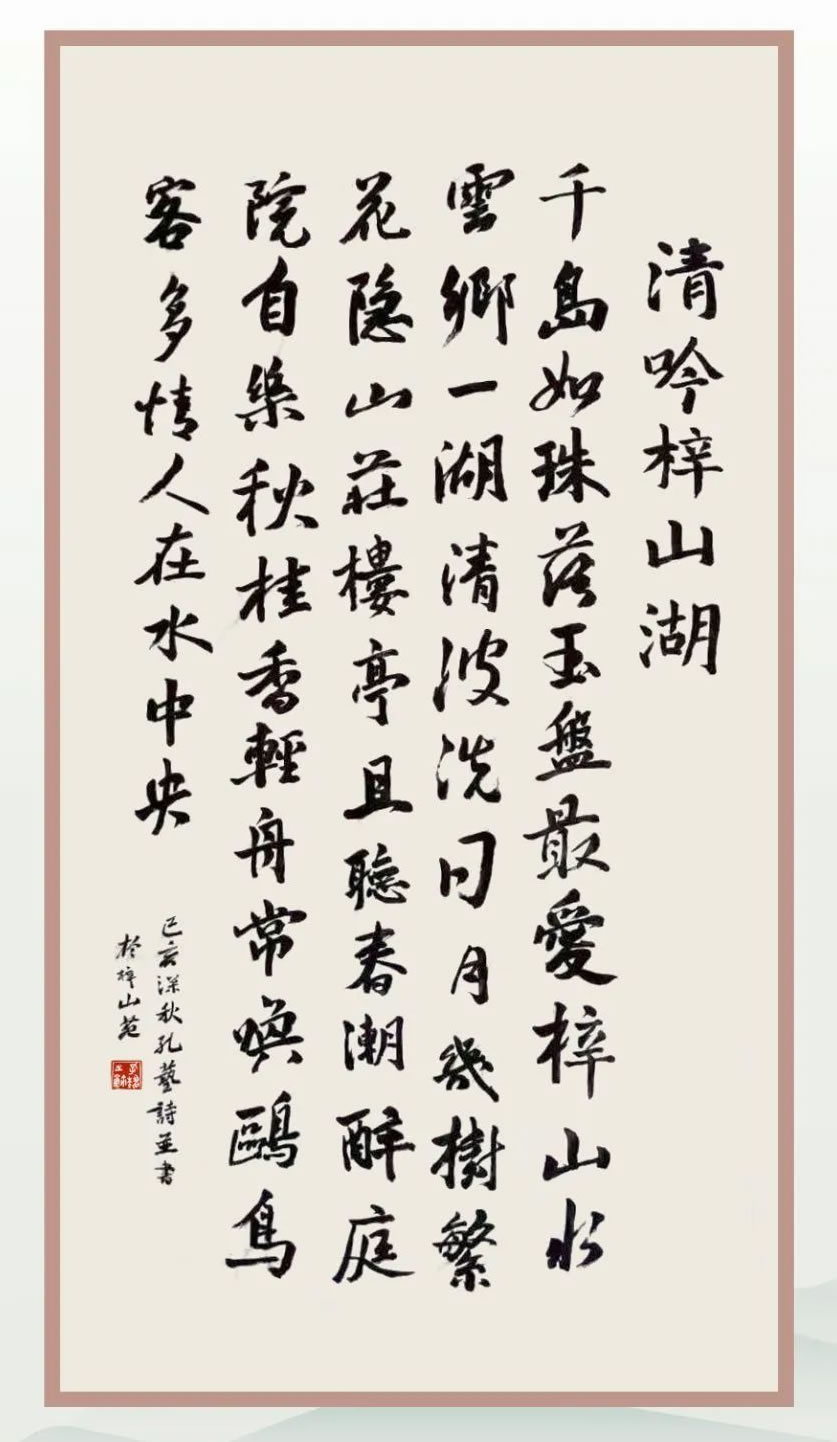 清吟梓山湖
千島如珠落玉盤最愛梓山水
雲鄉一湖清波洗日月幾樹繁
花隐山莊樓亭且聽春潮醉庭
院自樂秋桂香輕舟常喚鷗鳥
客多情人在水中央
己亥深秋孔藝詩並書
於梓山苑